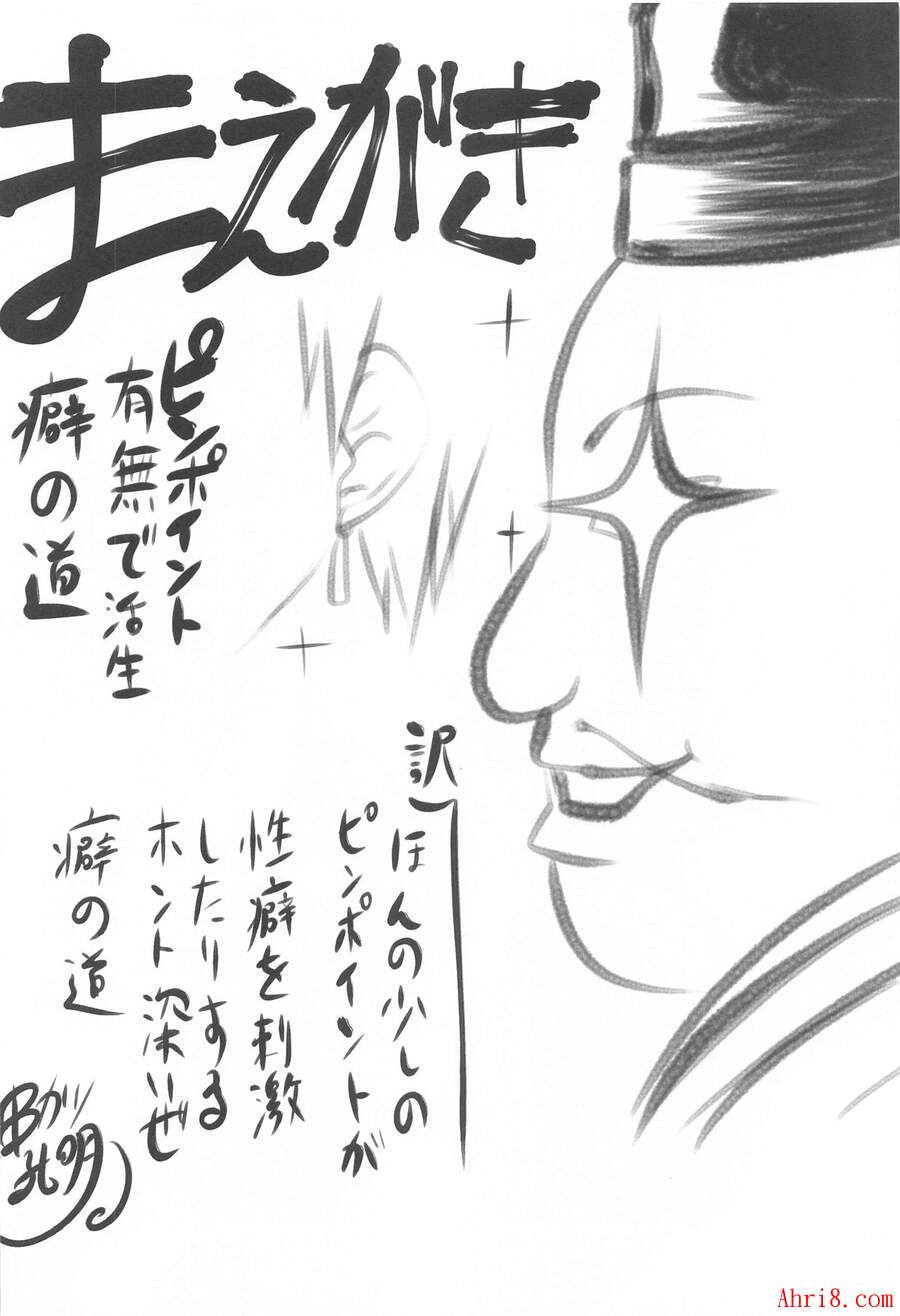 まえがき
ピンポイント
有無で活生
癖の道
訳
ほんの少しの
ピンポイントが
性癖を刺激
したりする
ホント深いぜ
癖の道
孔明
Ahri8.com